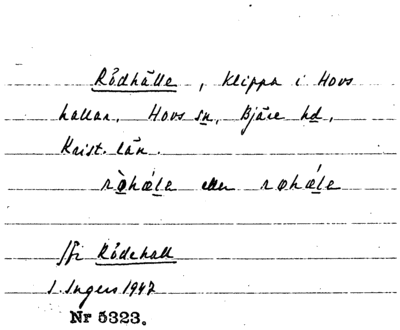 Rödhälle, klippa i Hovs
hallar, Hovs sn, Bjäre hd,
Krist. län.
eller
jfr Rödehall
I. Ingers 1947
Nr 5323.